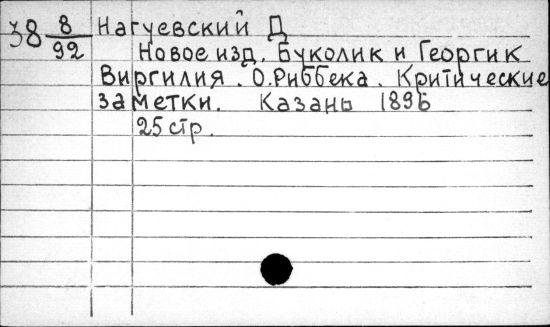 38 8/92 Нагуевский Д
Новое изд. Буколик и Георгик
Виргилия. О. Риббека. Критические
заметки. Казань 1896
25 стр.